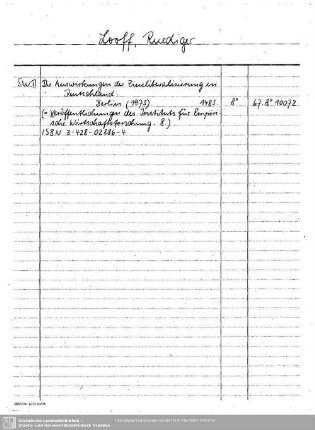 Looff, Ruediger
SWII Die Auswirkungen der Zinsliberalisierung in
Deutschland.
Berlin (1973) 148 S. 8° 67.8° 10072
(= Veröffentlichungen des Instituts für Empiri-
sche Wirtschaftsforschung. 8.)
ISBN 3-428-02886-4
Sächsische Landesbibliothek -
Staats- und Universitätsbibliothek Dresden